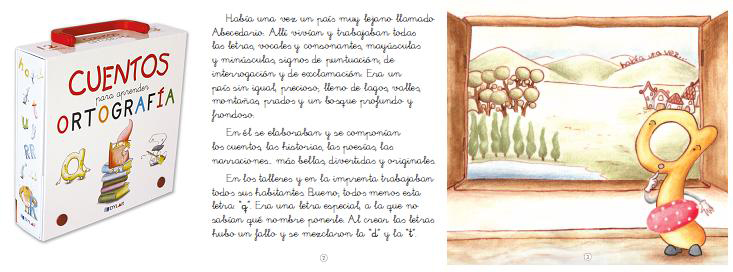 CUENTOS
para aprender
ORTOGRAFÍA
Había una vez un país muy lejano llamado
Abecedario. Allí vivían y trabajaban todas
las letras, vocales y consonantes, mayúsculas
y minúsculas, signos de puntuación, de
interrogación y de exclamación. Era un
país sin igual, precioso, lleno de lagos, valles,
montañas, prados y un bosque profundo y
frondoso.
En él se elaboraban y se componían
los cuentos, las historias, las poesías, las
narraciones... más bellas, divertidas y originales.
En los talleres y en la imprenta trabajaban
todos sus habitantes. Bueno, todos menos esta
letra "q". Era una letra especial, a la que no
sabían qué nombre ponerle. Al crear las letras
hubo un fallo y se mezclaron la "d" y la "t".
2
había una vez...
3